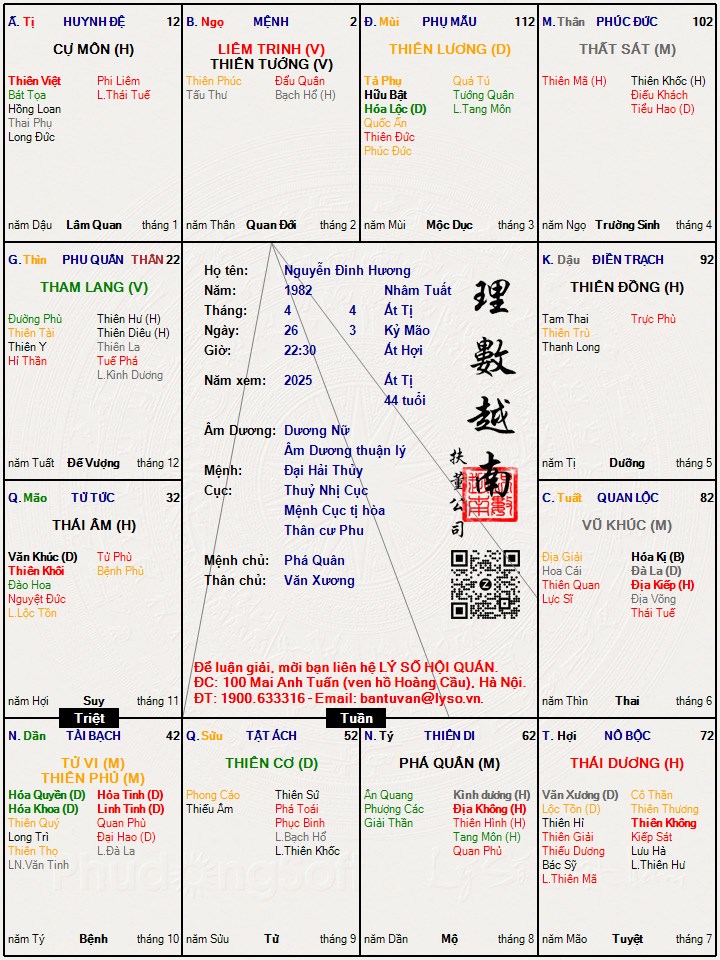 Ấ. Tị HUYNH ĐỆ 12
CỰ MÔN (H)
Thiên Việt
Bát Tọa
Hồng Loan
Thai Phụ
Long Đức
Phi Liêm
L.Thái Tuế
năm Dậu Lâm Quan tháng 1
B. Ngọ MỆNH 2
LIÊM TRINH (V)
THIÊN TƯỚNG (V)
Thiên Phúc
Tấu Thư
Đẩu Quân
Bạch Hổ (H)
năm Thân Quan Đới tháng 2
Đ. Mùi PHỤ MẪU 112
THIÊN LƯƠNG (D)
Tả Phụ
Hữu Bật
Hóa Lộc (D)
Quốc Ấn
Thiên Đức
Phúc Đức
Quả Tú
Tướng Quân
L.Tang Môn
năm Mùi Mộc Dục tháng 3
M. Thân PHÚC ĐỨC 102
THẤT SÁT (M)
Thiên Mã (H)
Thiên Khốc (H)
Điếu Khách
Tiểu Hao (D)
năm Ngọ Trường Sinh tháng 4
G. Thìn PHU QUÂN THÂN 22
THAM LANG (V)
Đường Phù
Thiên Tài
Thiên Y
Hỉ Thần
Thiên Hư (H)
Thiên Diêu (H)
Thiên La
Tuế Phá
L.Kình Dương
năm Tuất Đế Vượng tháng 12
Họ tên: Nguyễn Đinh Hương
Năm: 1982 Nhâm Tuất
Tháng: 4 4 Ất Tị
Ngày: 26 3 Kỷ Mão
Giờ: 22:30 Ất Hợi
Năm xem: 2025 Ất Tị
44 tuổi
Âm Dương: Dương Nữ
Âm Dương thuận lý
Mệnh: Đại Hải Thủy
Cục: Thuỷ Nhị Cục
Mệnh Cục tị hòa
Thân cư Phu
Mệnh chủ: Phá Quân
Thân chủ: Văn Xương
理數越南
扶董公司
Để luận giải, mời bạn liên hệ LÝ SỐ HỘI QUÁN.
ĐC: 100 Mai Anh Tuấn (ven hồ Hoàng Cầu), Hà Nội.
ĐT: 1900.633316 - Email: bantuvan@lyso.vn.
K. Dậu ĐIỀN TRẠCH 92
THIÊN ĐỒNG (H)
Tam Thai
Thiên Trù
Thanh Long
Trực Phù
năm Tị Dưỡng tháng 5
Q. Mão TỬ TỨC 32
THÁI ÂM (H)
Văn Khúc (D)
Thiên Khôi
Đào Hoa
Nguyệt Đức
L.Lộc Tồn
Tử Phù
Bệnh Phù
năm Hợi Suy tháng 11
C. Tuất QUAN LỘC 82
VŨ KHÚC (M)
Địa Giải
Hoa Cái
Thiên Quan
Lực Sĩ
Hóa Kị (B)
Đà La (D)
Địa Kiếp (H)
Địa Võng
Thái Tuế
năm Thìn Thai tháng 6
Triệt
Tuần
N. Dần TÀI BẠCH 42
TỬ VI (M)
THIÊN PHỦ (M)
Hóa Quyền (D)
Hóa Khoa (D)
Thiên Quý
Long Trì
Thiên Thọ
LN.Văn Tinh
Hỏa Tinh (D)
Linh Tinh (D)
Quan Phù
Đại Hao (D)
L.Đà La
năm Tý Bệnh tháng 10
Q. Sửu TẬT ÁCH 52
THIÊN CƠ (D)
Phong Cáo
Thiếu Âm
Thiên Sứ
Phá Toái
Phục Binh
L.Bạch Hổ
L.Thiên Khốc
năm Sửu Tử tháng 9
N. Tý THIÊN DI 62
PHÁ QUÂN (M)
Ân Quang
Phượng Các
Giải Thần
Kình dương (H)
Địa Không (H)
Thiên Hình (H)
Tang Môn (H)
Quan Phủ
năm Dần Mộ tháng 8
T. Hợi NÔ BỘC 72
THÁI DƯƠNG (H)
Văn Xương (D)
Lộc Tồn (D)
Thiên Hỉ
Thiên Giải
Thiếu Dương
Bác Sỹ
L.Thiên Mã
Cô Thần
Thiên Thương
Thiên Không
Kiếp Sát
Lưu Hà
L.Thiên Hư
năm Mão Tuyệt tháng 7